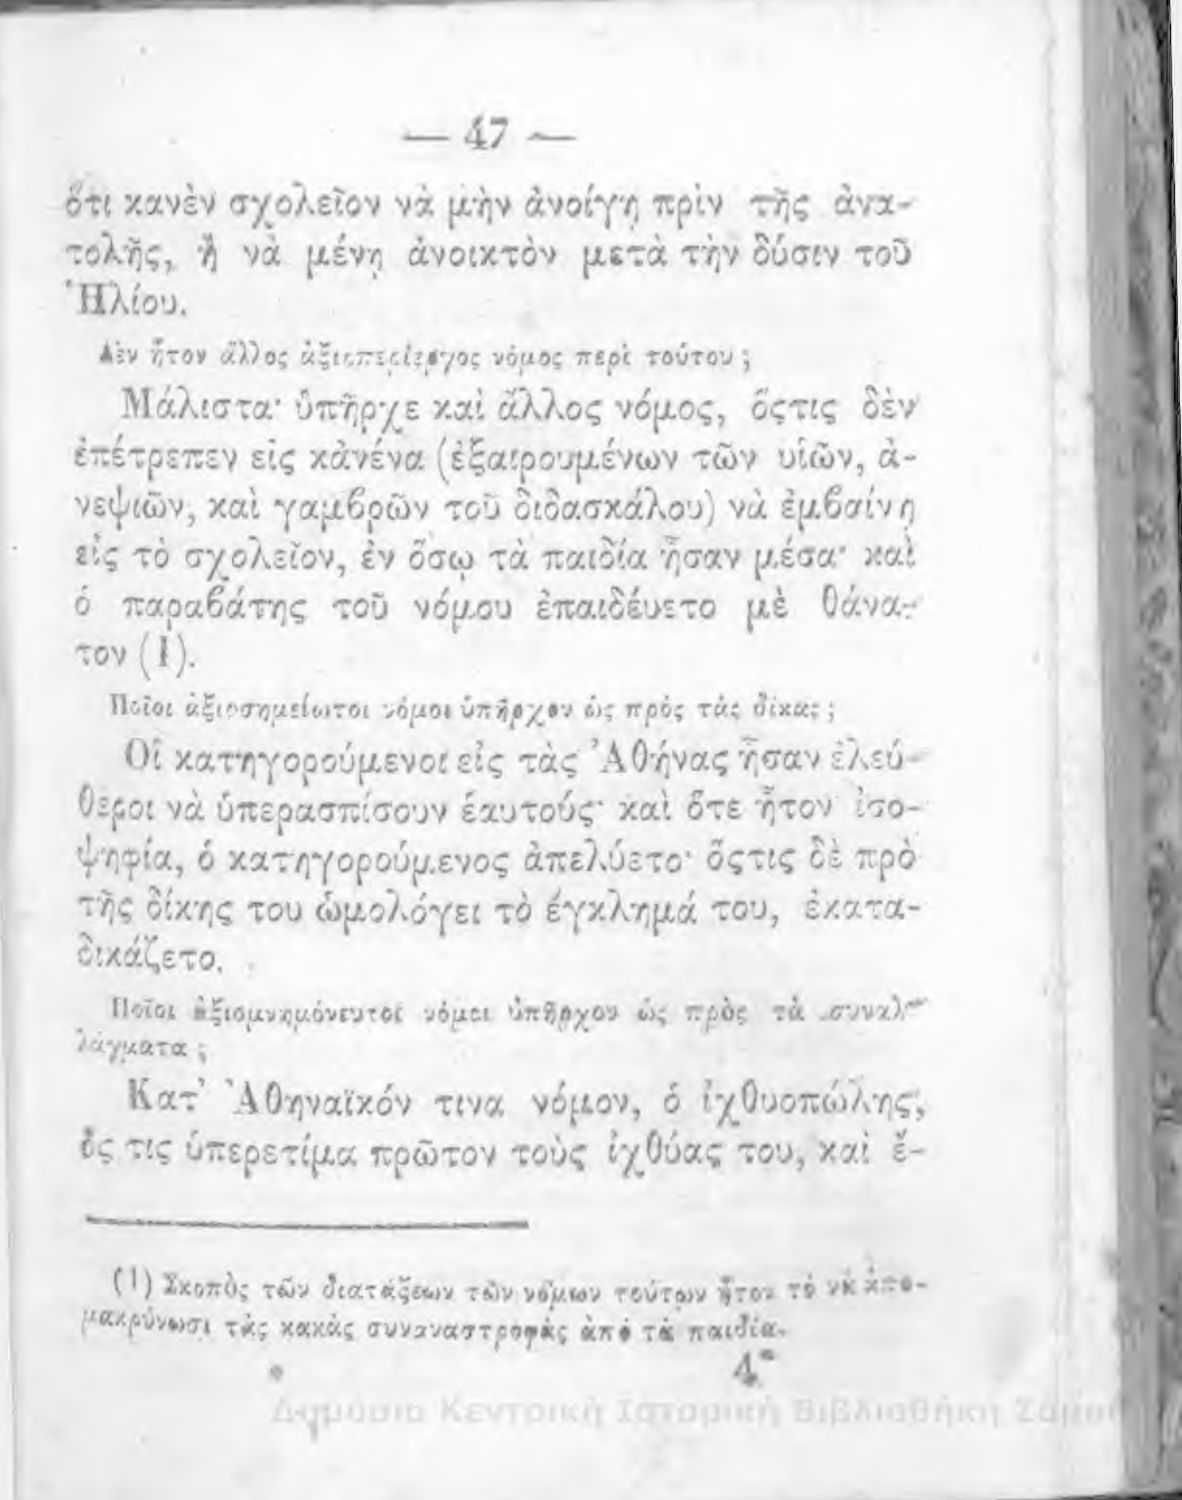 — 47 —
ὅτι κανὲν σχολεῖον νὰ μὴν ἀνοίγῃ πρὶν τῆς ἀνα-
τολῆς, ἢ νὰ μένῃ ἀνοικτὸν μετὰ τὴν δύσιν τοῦ
Ἡλίου.
Δὲν ἦτον ἄλλος ἀξιοπερίεργος νόμος περὶ τούτου ;
Μάλιστα· ὑπῆρχε καὶ ἄλλος νόμος, ὅςτις δὲν
ἐπέτρεπεν εἰς κἀνένα (ἐξαιρουμένων τῶν υἱῶν, ἀ-
νεψιῶν, καὶ γαμβρῶν τοῦ διδασκάλου) νὰ ἐμβαίνῃ
εἰς τὸ σχολεῖον, ἐν ὅσῳ τὰ παιδία ἦσαν μέσα· καὶ
ὁ παραβάτης τοῦ νόμου ἐπαιδεύετο μὲ θάνα-
τον (1).
Ποῖοι ἀξιοσημείωτοι νόμοι ὑπῆρχον ὡς πρὸς τὰς δίκας ;
Οἱ κατηγορούμενοι εἰς τὰς Ἀθήνας ἦσαν ἐλεύ-
θεροι νὰ ὑπερασπίσουν ἑαυτούς· καὶ ὅτε ἦτον ἰσο-
ψηφία, ὁ κατηγορούμενος ἀπελύετο· ὅςτις δὲ πρὸ
τῆς δίκης του ὡμολόγει τὸ ἔγκλημά του, ἐκατα-
δικάζετο.
Ποῖοι ἀξιομνημόνευτοι νόμοι ὑπῆρχον ὡς πρὸς τὰ συναλ-
λάγματα ;
Κατ' Ἀθηναϊκόν τινα νόμον, ὁ ἰχθυοπώλης,
ὅς τις ὑπερετίμα πρῶτον τοὺς ἰχθύας του, καὶ ἔ-
(1) Σκοπὸς τῶν διατάξεων τῶν νόμων τούτων ἦτον τὸ νὰ ἀπο-
μακρύνωσι τὰς κακὰς συναναστροφὰς ἀπὸ τὰ παιδία.
4*
Δημόσια Κεντρική Ιστορική Βιβλιοθήκη Σάμου